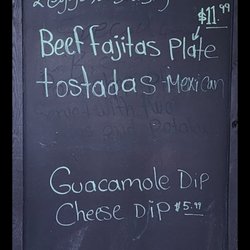 $11.99
Beef fajitas Plate
tostadas - Mexican
Guacamole Dip
Cheese Dip $5.99